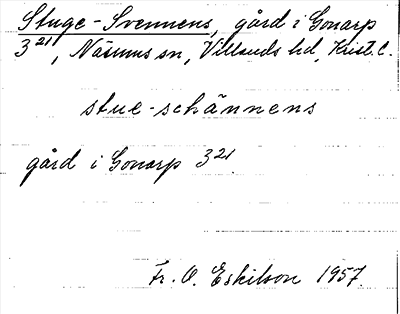 Stuge-Svennens, gård i Gonarp
3²¹, Näsums sn, Villands hd, Krist. l.
stue-schännens
gård i Gonarp 3²¹.
Fr. O. Eskilson 1957.